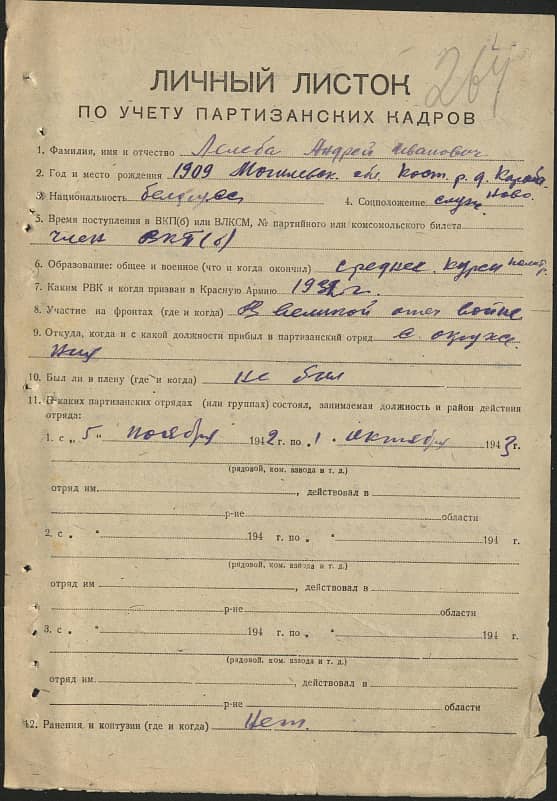 264
ЛИЧНЫЙ ЛИСТОК
ПО УЧЕТУ ПАРТИЗАНСКИХ КАДРОВ
1. Фамилия, имя и отчество Андрей Иванович
2. Год и место рождения 1909 Могилевск. обл. Кост. р. д.
3. Национальность белорус 4. Соцположение служ.
5. Время поступления в ВКП(б) или ВЛКСМ, № партийного или комсомольского билета
член ВКП(б)
6. Образование: общее и военное (что и когда окончил) среднее, курсы полит.
7. Каким РВК и когда призван в Красную Армию г.
8. Участие на фронтах (где и когда) в великой отеч войне
9. Откуда, когда и с какой должности прибыл и партизанский отряд с окруже
ния
10. Был ли в плену (где и когда) не был
11. В каких партизанских отрядах (или группах) состоял, занимаемая должность и район действия
отряда:
1. с „ 5 " ноября 1942 г. по 1 октября 1943 г.
(рядовой, ком. взвода и т. д.)
отряд им. , действовал в
р-не области
2. с „ " 194 г. по „ " 194 г.
(рядовой, ком. взвода и т. д.)
отряд им , действовал в
р-не области
3. с „ " 194 г. по „ " 194 г.
(рядовой, ком. взвода и т. д.)
отряд им. , действовал в
р-не области
12. Ранения и контузии (где и когда) Нет.